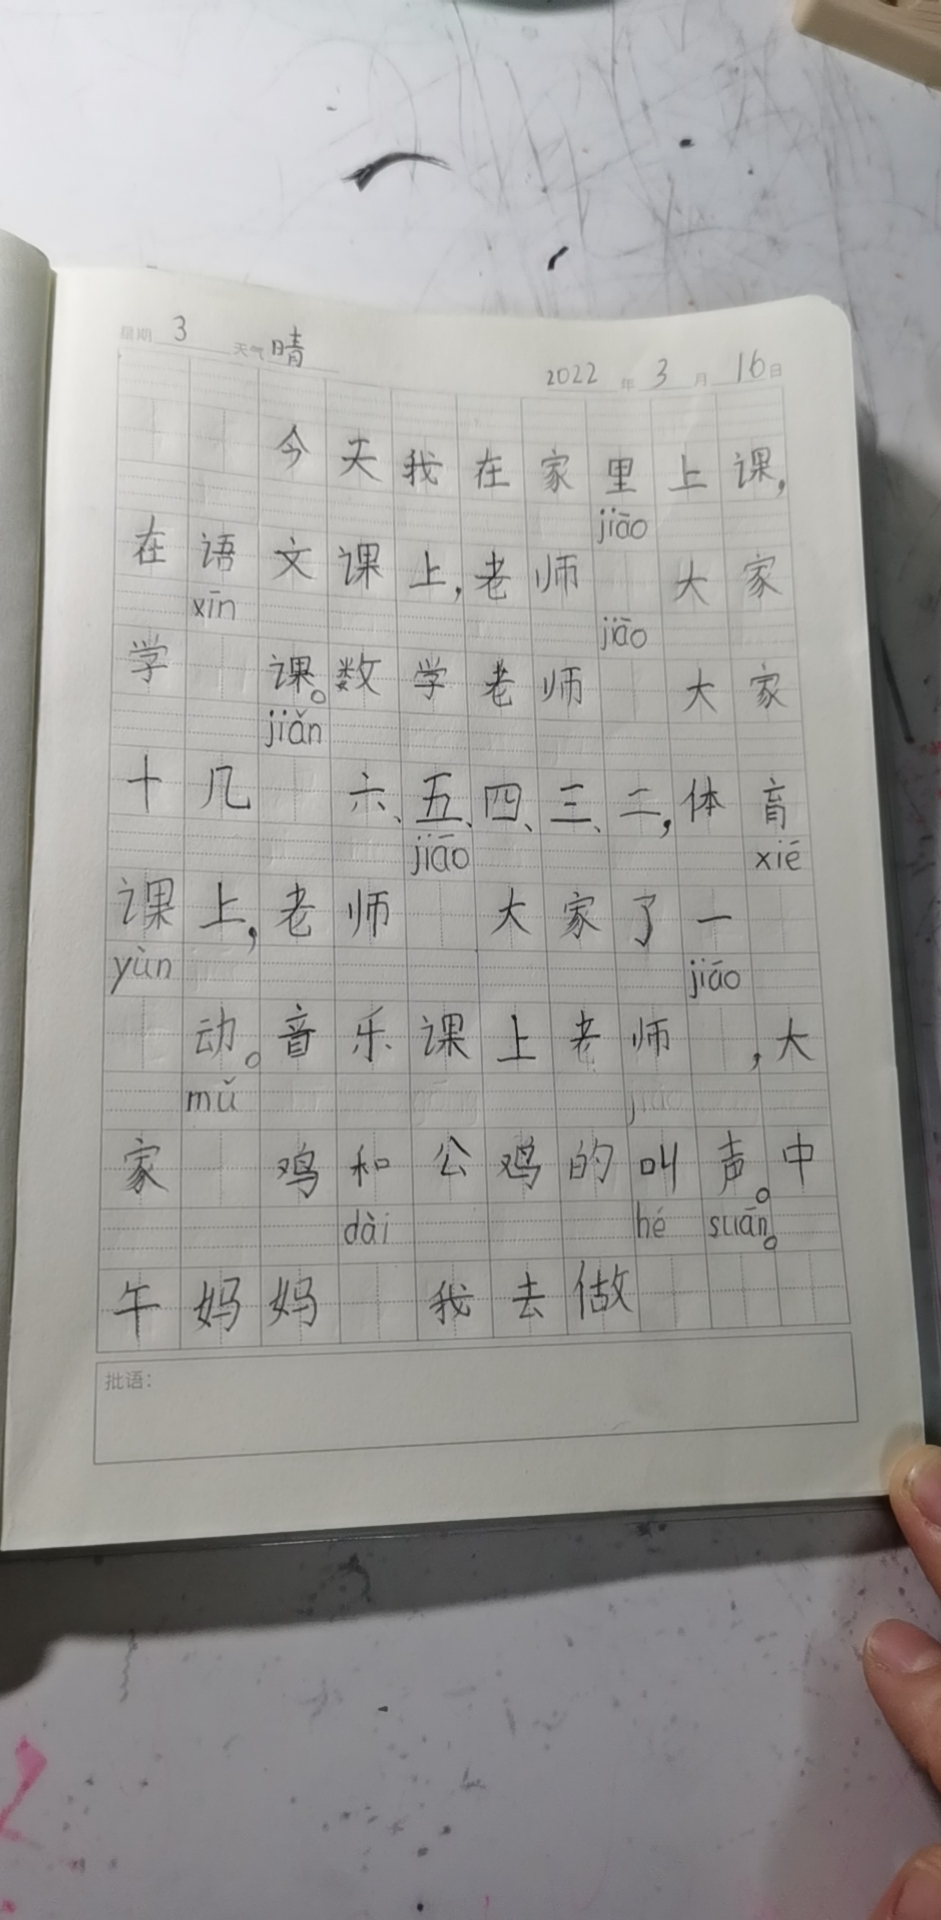 星期 3 天气 晴 2022 年 3 月 16 日
今天我在家里上课,
jiāo
在语文课上,老师 大家
xīn jiāo
学 课。数学老师 大家
jiǎn
十几 六、五、四、三、二,体育
jiāo xié
课上,老师 大家了一
yùn jiāo
动。音乐课上老师 ,大
mǔ
家 鸡和公鸡的叫声。中
dài hé suān。
午妈妈 我去做
批语: